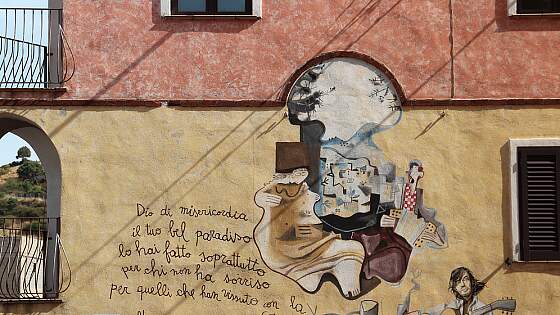 Dio di misericordia
il tuo bel paradiso
lo hai fatto soprattutto
per chi non ha sorriso
per quelli che han vissuto con la